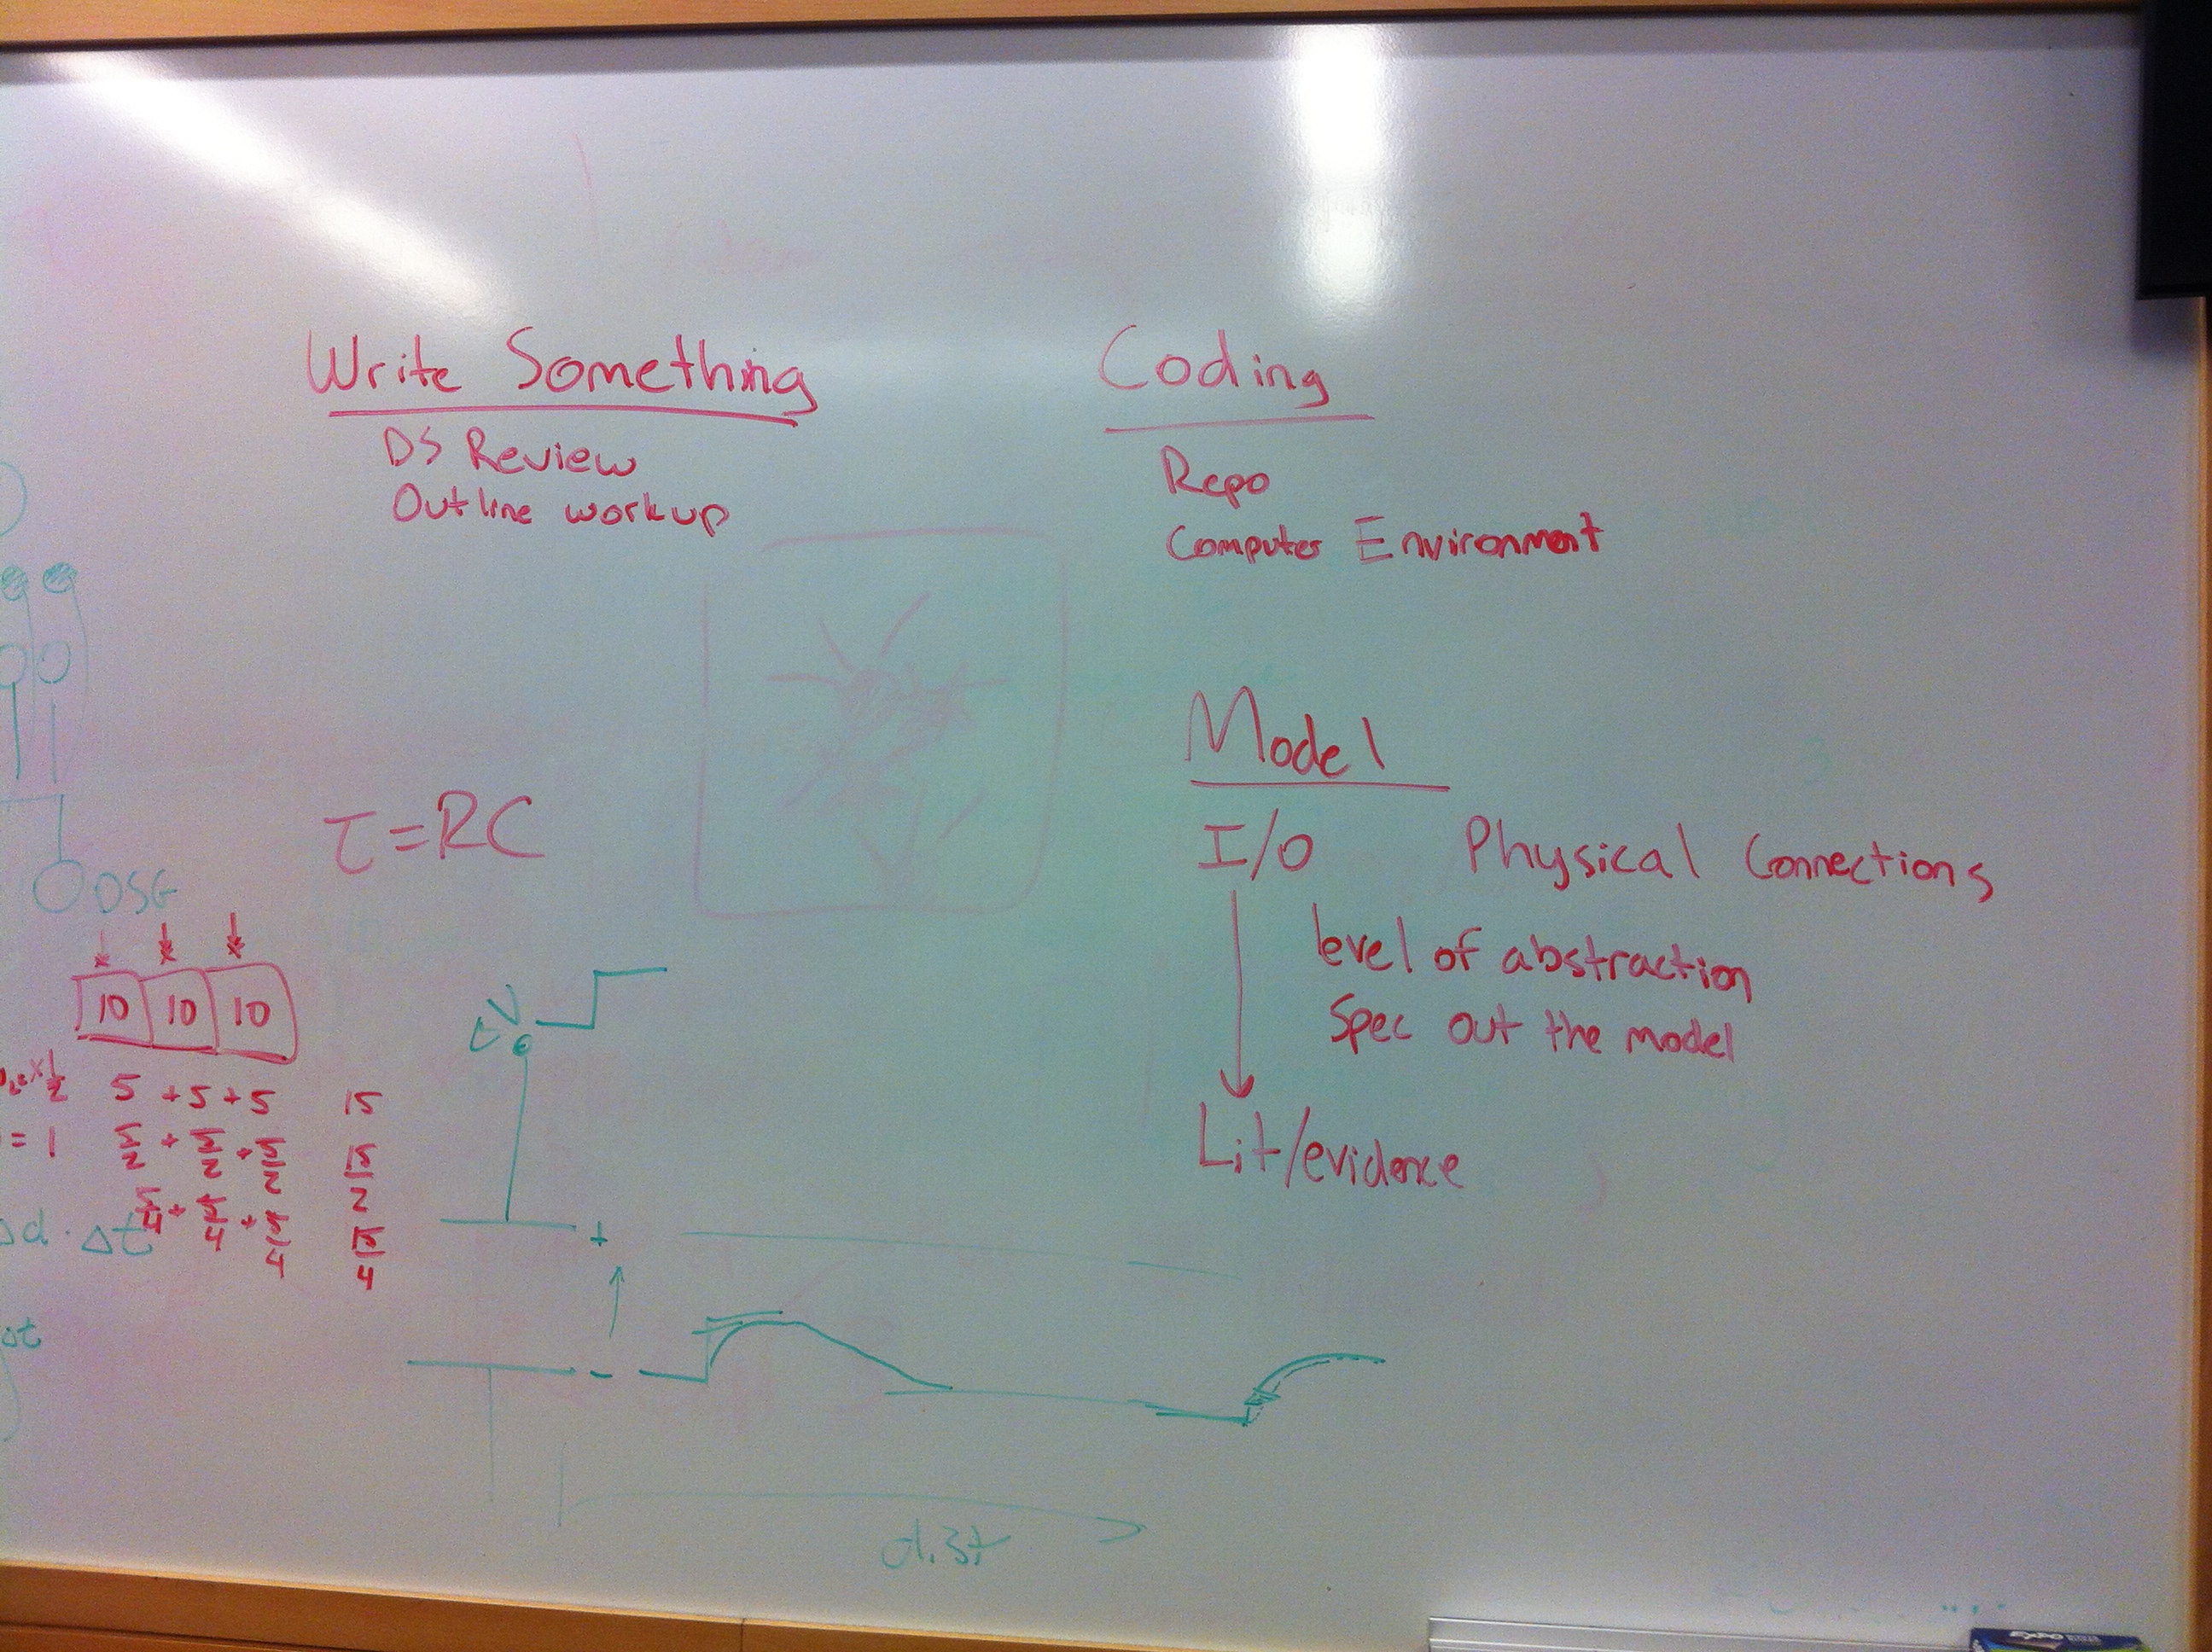 Write Something
DS Review
Outline workup
Coding
Repo
Computer Environment
Model
I/O Physical Connections
level of abstraction
Spec out the model
Lit/evidence
τ = RC
DSG
10 10 10
×1/2 5 + 5 + 5 15
= 1 5/2 + 5/2 + 5/2 15/2
5/4 + 5/4 + 5/4 15/4
Δd · Δt
Δt
+
-
dist
EXPO